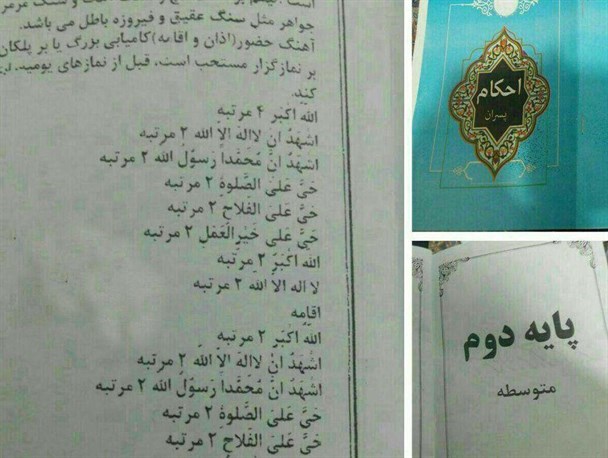 جواهر مثل سنگ عقیق و فیروزه باطل می باشد.
آهنگ حضور(اذان و اقامه)کامیابی بزرگ یا بر پلکان
بر نمازگزار مستحب است، قبل از نمازهای یومیه،
کند.
الله اکبر ۴ مرتبه
اشهد ان لااله الا الله ۲ مرتبه
اشهد ان محمداً رسول الله ۲ مرتبه
حی علی الصلوة ۲ مرتبه
حی علی الفلاح ۲ مرتبه
حی علی خیر العمل ۲ مرتبه
الله اکبر ۲ مرتبه
لا اله الا الله ۲ مرتبه
اقامه
الله اکبر ۲ مرتبه
اشهد ان لااله الا الله ۲ مرتبه
اشهد ان محمداً رسول الله ۲ مرتبه
حی علی الصلوة ۲ مرتبه
حی علی الفلاح ۲ مرتبه
احکام
پسران
پایه دوم
متوسطه